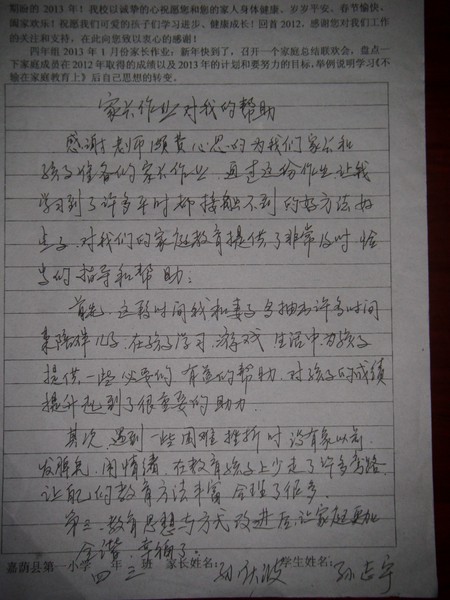 期治的 2013 年！我校以诚挚的心祝愿您和您的家人身体健康、岁岁平安、春节愉快、
阖家欢乐！祝愿我们可爱的孩子们学习进步、健康成长！回首 2012，感谢您对我们工作
的关注和支持，在此向您致以衷心的感谢！
四年组 2013 年 1 月份家长作业：新年快到了，召开一个家庭总结联欢会，盘点一
下家庭成员在 2012 年取得的成绩以及 2013 年的计划和要努力的目标，举例说明学习《不
输在家庭教育上》后自己思想的转变。
家长作业对我的帮助
感谢老师们费心思的为我们家长和
孩子准备的家长作业，通过这份作业让我
学习到了许多平时都接触不到的好方法好
点子，对我们的家庭教育提供了非常及时恰
当的指导和帮助：
首先，这段时间我和妻子多抽出许多时间
来陪伴儿子，在孩子学习、游戏、生活中为孩子
提供一些必要的、有益的帮助，对孩子的成绩
提升起到了很重要的助力。
其次，遇到一些困难挫折时没有象以前
发脾气、闹情绪，在教育孩子上少走了许多弯路，
让我们的教育方法丰富、合理了很多。
第三、教育思想与方式改进后，让家庭更加
和谐、幸福了。
嘉荫县第一小学 四 年 三 班 家长姓名： 孙 波 学生姓名： 孙 宇